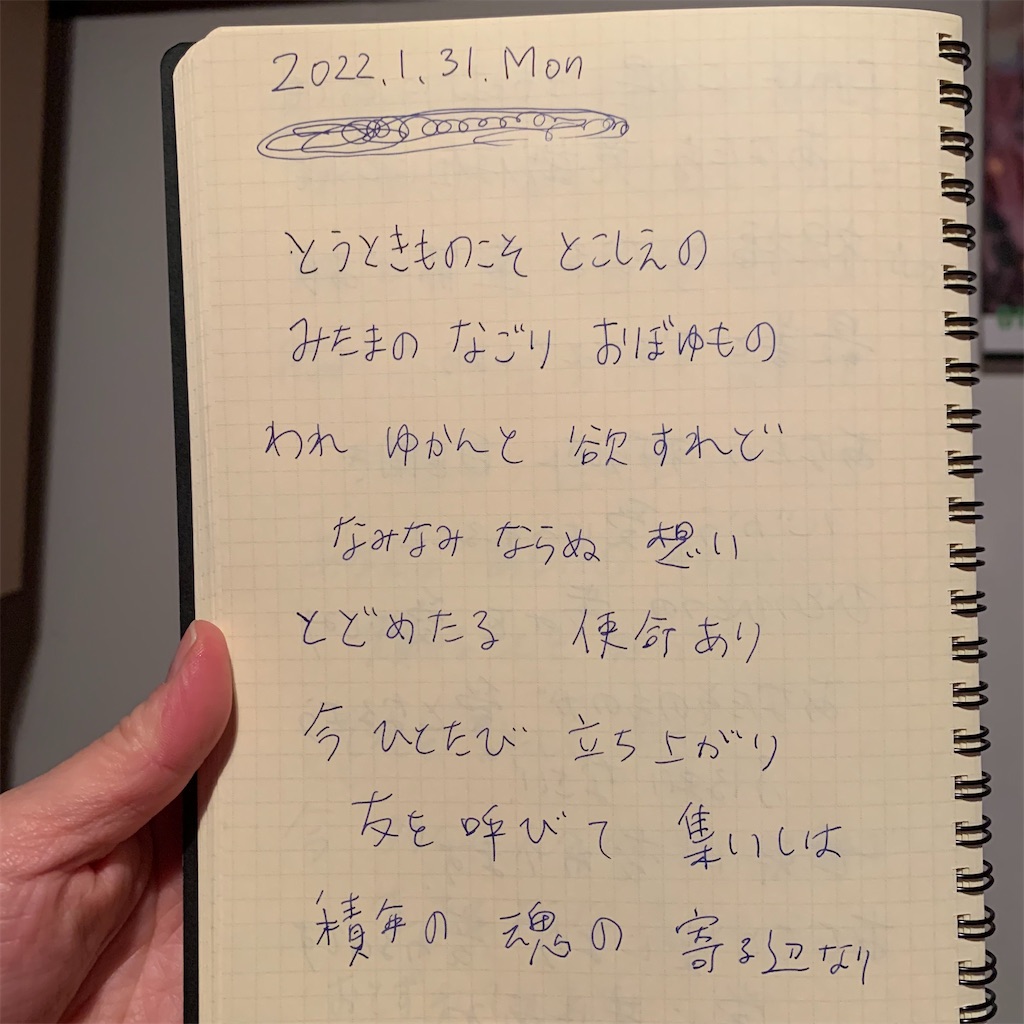 2022.1.31.Mon
とうときものこそ とこしえの
みたまの なごり おぼゆもの
われ ゆかんと 欲すれど
なみなみ ならぬ 想い
とどめたる 使命あり
今 ひとたび 立ち上がり
友を 呼びて 集いしは
積年の 魂の 寄る辺なり